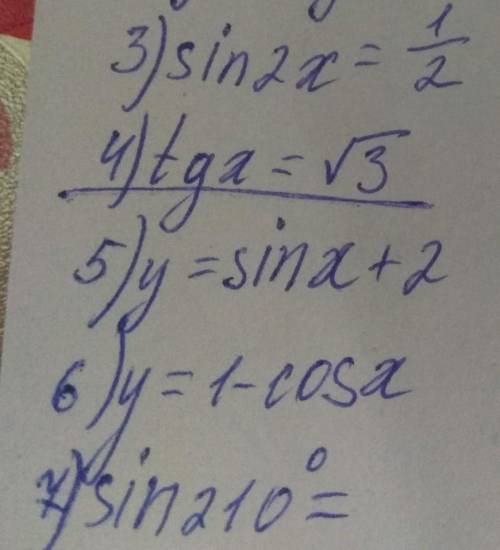 3) sin2x = 1/2
4) tgx = √3
5) y = sinx + 2
6) y = 1 - cosx
7) sin210° =